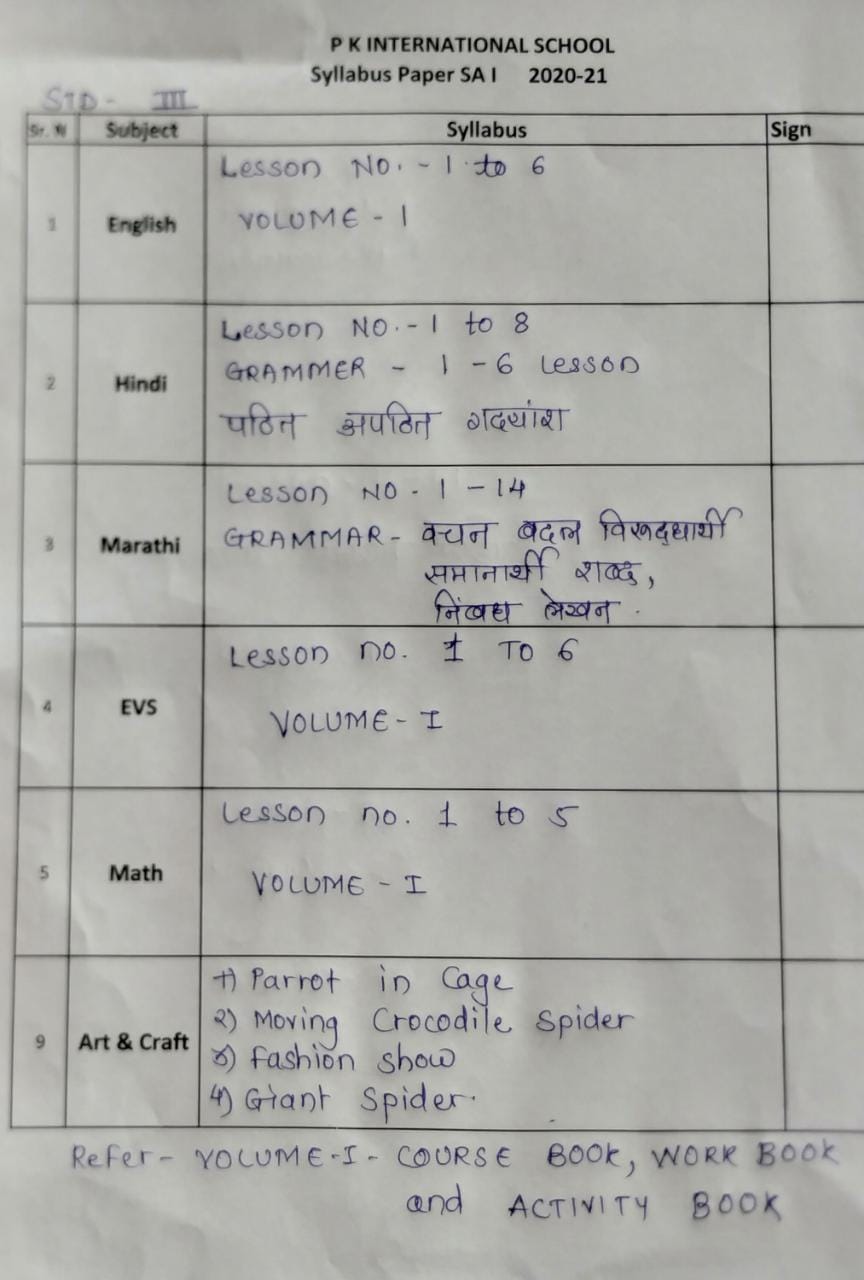 P K INTERNATIONAL SCHOOL
Syllabus Paper SA I 2020-21
STD - III
Sr. N Subject Syllabus Sign
1 English
Lesson NO. - 1 to 6
VOLUME - 1
2 Hindi
Lesson NO. - 1 to 8
GRAMMER - 1 - 6 Lesson
पठित अपठित गदयांश
3 Marathi
Lesson NO - 1 - 14
GRAMMAR - वचन बदल विरूद्धार्थी
समानार्थी शब्द,
निंबध लेखन .
4 EVS
Lesson no. 1 TO 6
VOLUME - I
5 Math
Lesson no. 1 to 5
VOLUME - I
9 Art & Craft
1) Parrot in Cage
2) Moving Crocodile Spider
3) Fashion show
4) Giant Spider.
Refer - VOLUME - I - COURSE BOOK, WORK BOOK
and ACTIVITY BOOK